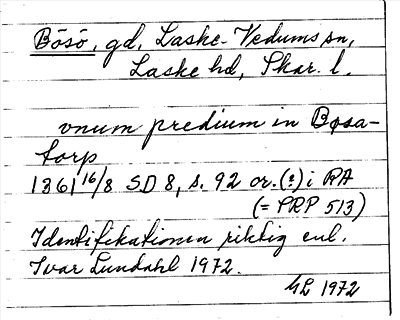 Bösö, gd, Laske-Vedums sn,
Laske hd, Skar. l.
vnum predium in Bøsa-
torp
1361 16/8 SD 8, s. 92 or. (?) i RA
(= PRP 513)
Identifikationen riktig enl.
Ivar Lundahl 1972.
GL 1972